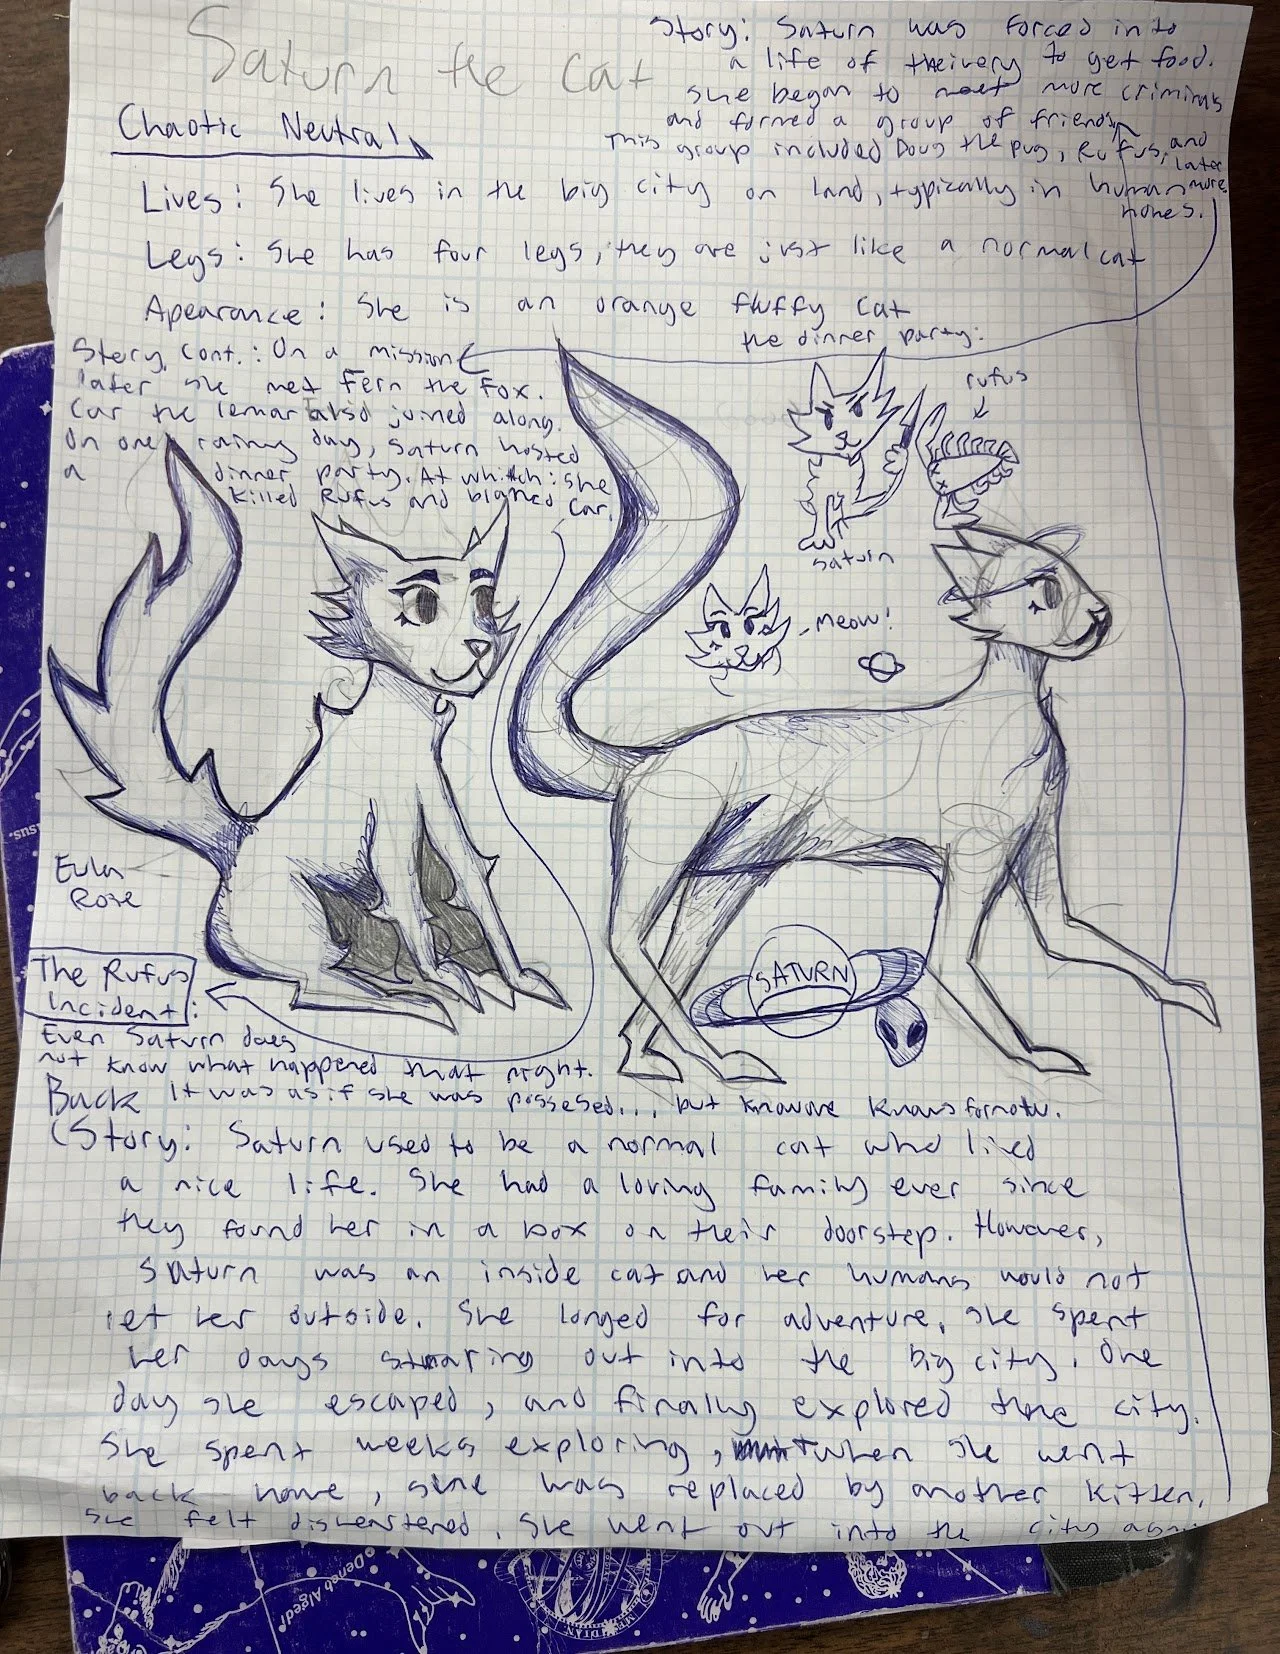 Saturn the Cat
Story: Saturn was forced into
a life of theivery to get food.
She began to meet more criminals
and formed a group of friends,
This group included Doug the pug, Rufus, and
later
more.
Chaotic Neutral
Lives: She lives in the big city on land, typically in human
homes.
Legs: She has four legs, they are just like a normal cat
Apearance: She is an orange fluffy cat
Story Cont.: On a mission
later she met Fern the Fox.
Car the lemar also joined along.
On one rainy day, Saturn hosted
a dinner party. At which: she
killed Rufus and blamed Car.
the dinner party:
rufus
saturn
meow!
Eula
Rose
SATURN
The Rufus
Incident:
Even Saturn does
not know what happened that night.
It was as if she was possesed... but knowone knows fornow.
Back
Story: Saturn used to be a normal cat who lived
a nice life. She had a loving family ever since
they found her in a box on their doorstep. However,
Saturn was an inside cat and her humans would not
let her outside. She longed for adventure, she spent
her days staring out into the big city. One
day she escaped, and finally explored the city.
She spent weeks exploring, when she went
back home, she was replaced by another kitten.
She felt disheartened. She went out into the city again
Deneb Algedi
MERIDIAN